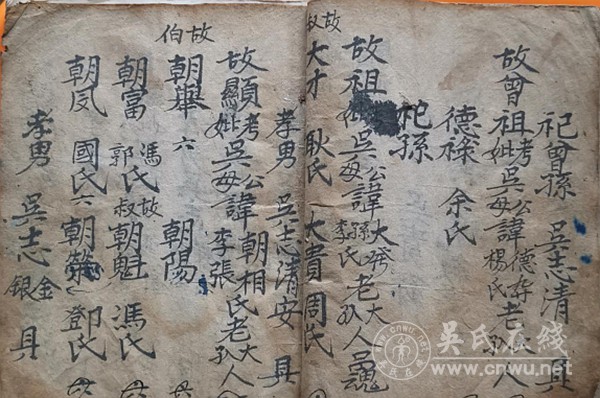 祀曾孫 吳志清 具
故曾祖考妣吳公母諱德存楊氏老大孔人
德祿 余氏
祀孫
故祖考妣吳公母諱大孫李氏老大孔人魂
故叔大才 耿氏 大貴 周氏
孝男 吳志清安 具
故顯考妣吳公母諱朝相李張氏老大孔人
故伯
朝舉 六 朝陽
朝富 馮郭氏 故叔朝魁 馮氏
朝凤 國氏 六 朝 鄧氏
孝男 吳志金銀 具
吴氏在线
www.cnwu.net